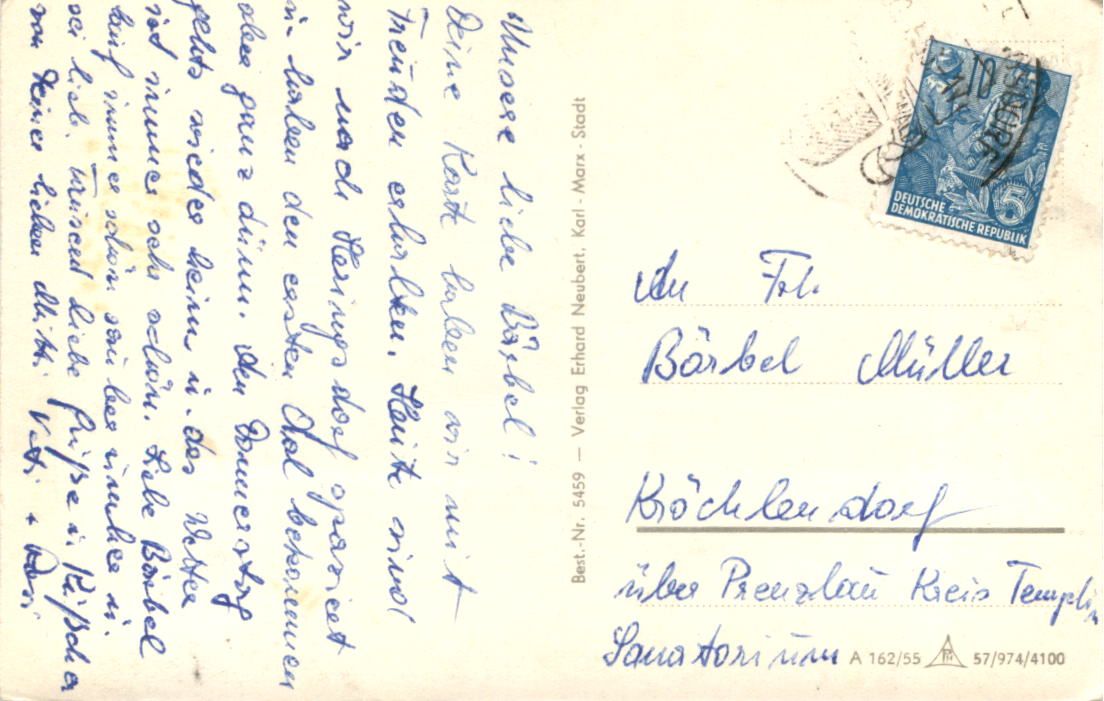 Unsere liebe Bärbel!
Deine Karte haben wir mit
Freuden erhalten. Heute sind
wir nach Heringsdorf spaziert
u. haben den ersten Aal bekommen
aber ganz dünn. Am Donnerstag
gehts wieder heim u. das Wetter
ist immer sehr schön. Liebe Bärbel
immer schön sauber u.
sei lieb. Liebe Grüße u. Küßchen
von Deiner lieben Mutti Vati +
Best.-Nr. 5459 — Verlag Erhard Neubert, Karl-Marx-Stadt
DEUTSCHE
DEMOKRATISCHE REPUBLIK
5
An Frl.
Bärbel Müller
Kröchlendorf
über Prenzlau Kreis Templin
Sanatorium
A 162/55 57/974/4100